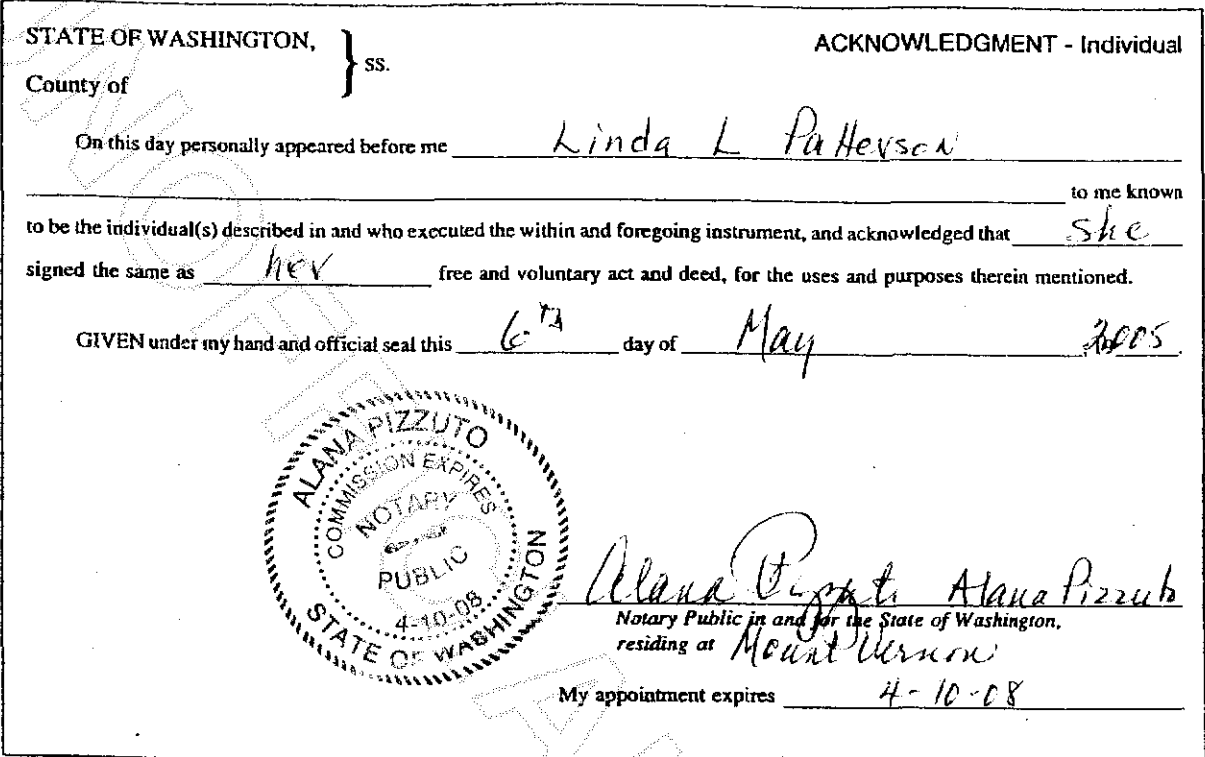 STATE OF WASHINGTON,
County of
} ss.
ACKNOWLEDGMENT - Individual
On this day personally appeared before me Linda L Patterson
to me known
to be the individual(s) described in and who executed the within and foregoing instrument, and acknowledged that she
signed the same as her free and voluntary act and deed, for the uses and purposes therein mentioned.
GIVEN under my hand and official seal this 6th day of May 2005
ALANA PIZZUTO
COMMISSION EXPIRES
NOTARY
PUBLIC
4-10-08
STATE OF WASHINGTON
Alana Pizzuto Alana Pizzuto
Notary Public in and for the State of Washington,
residing at Mount Vernon
My appointment expires 4-10-08